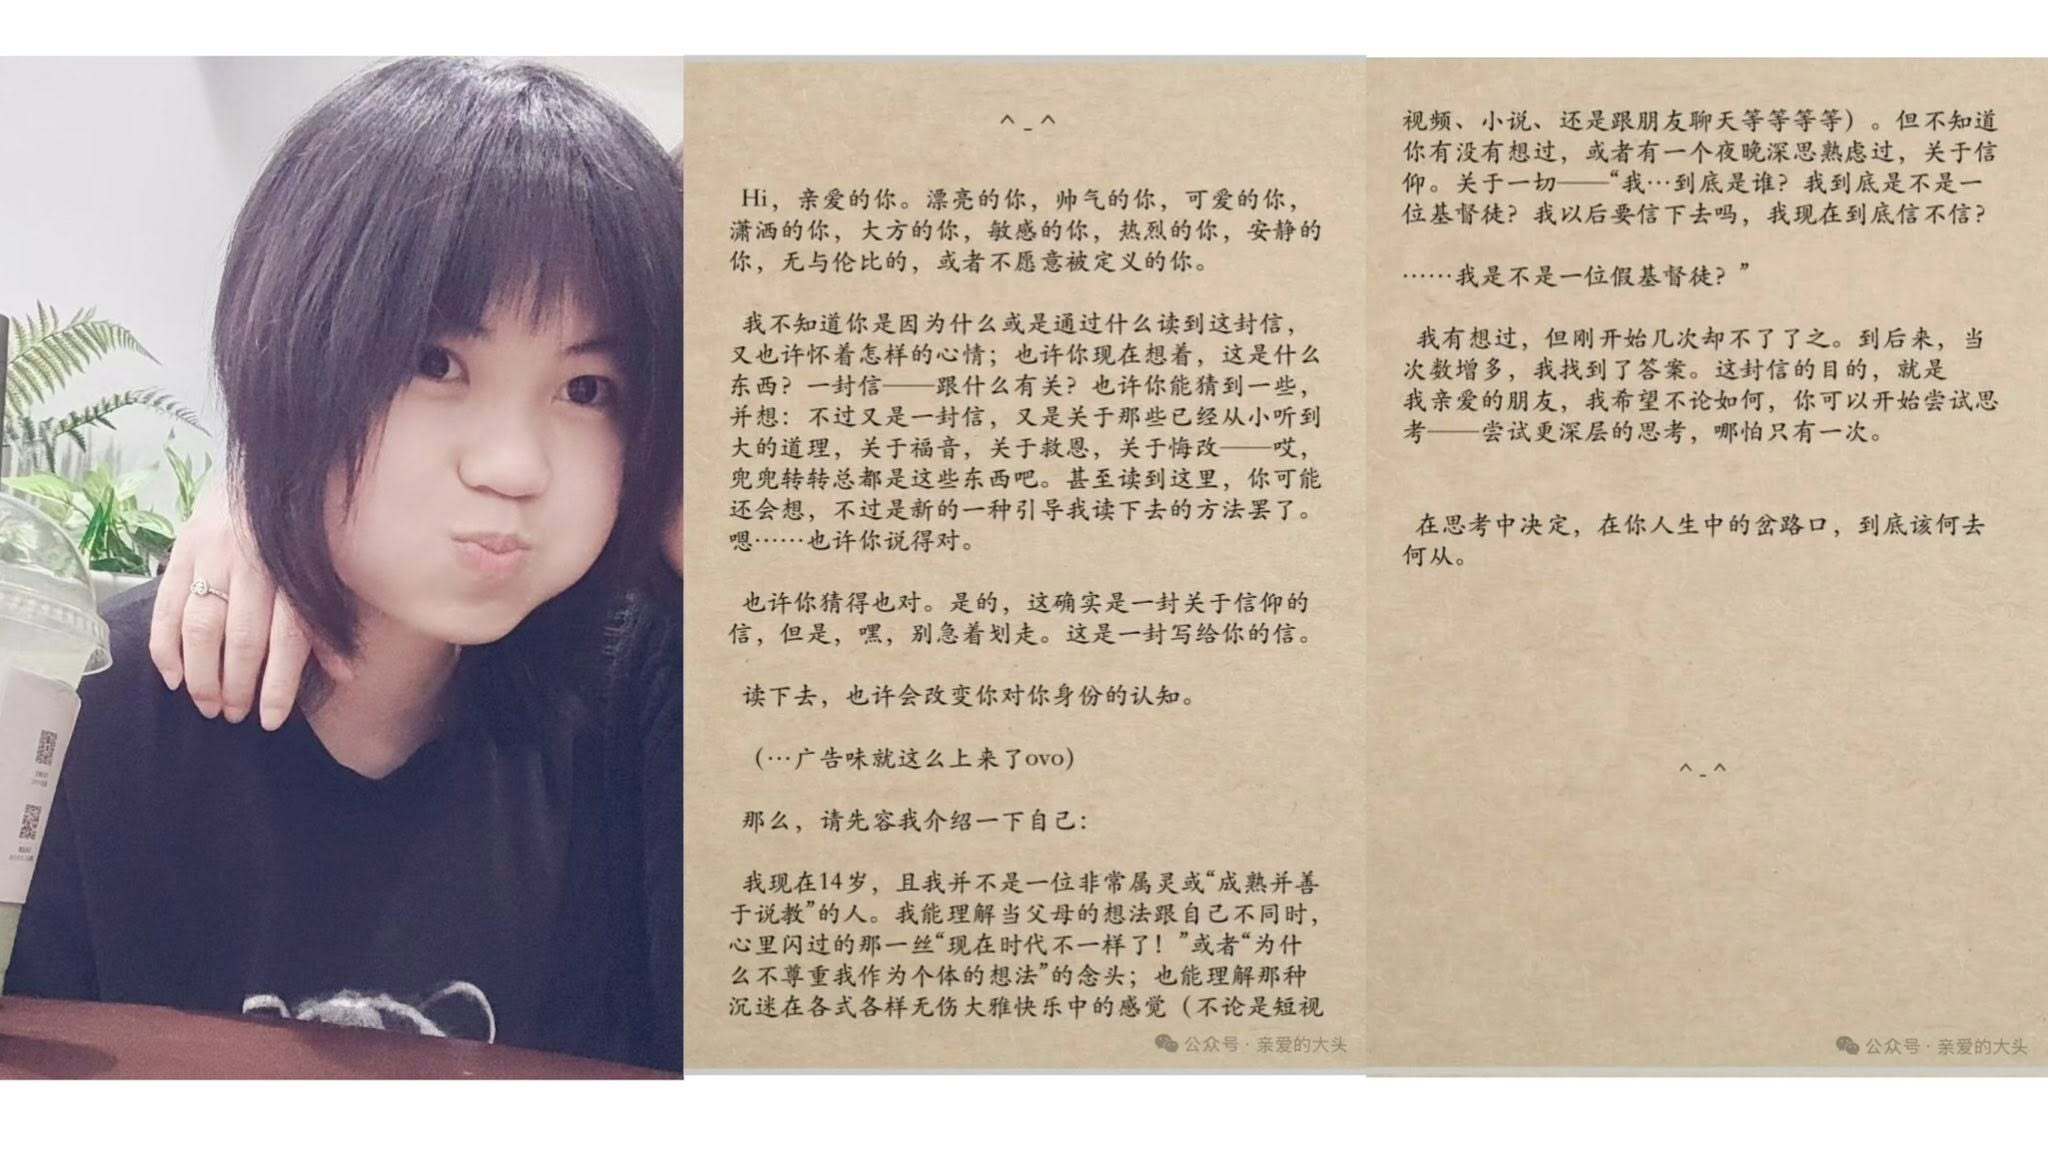 ^ - ^
Hi，亲爱的你。漂亮的你，帅气的你，可爱的你，
潇洒的你，大方的你，敏感的你，热烈的你，安静的
你，无与伦比的，或者不愿意被定义的你。
我不知道你是因为什么或是通过什么读到这封信，
又也许怀着怎样的心情；也许你现在想着，这是什么
东西？一封信——跟什么有关？也许你能猜到一些，
并想：不过又是一封信，又是关于那些已经从小听到
大的道理，关于福音，关于救恩，关于悔改——哎，
兜兜转转总都是这些东西吧。甚至读到这里，你可能
还会想，不过是新的一种引导我读下去的方法罢了。
嗯……也许你说得对。
也许你猜得也对。是的，这确实是一封关于信仰的
信，但是，嘿，别急着划走。这是一封写给你的信。
读下去，也许会改变你对你身份的认知。
（…广告味就这么上来了ovo）
那么，请先容我介绍一下自己：
我现在14岁，且我并不是一位非常属灵或“成熟并善
于说教”的人。我能理解当父母的想法跟自己不同时，
心里闪过的那一丝“现在时代不一样了！”或者“为什
么不尊重我作为个体的想法”的念头；也能理解那种
沉迷在各式各样无伤大雅快乐中的感觉（不论是短视
公众号 · 亲爱的大头
视频、小说、还是跟朋友聊天等等等等）。但不知道
你有没有想过，或者有一个夜晚深思熟虑过，关于信
仰。关于一切——“我…到底是谁？我到底是不是一
位基督徒？我以后要信下去吗，我现在到底信不信？
……我是不是一位假基督徒？”
我有想过，但刚开始几次却不了了之。到后来，当
次数增多，我找到了答案。这封信的目的，就是
我亲爱的朋友，我希望不论如何，你可以开始尝试思
考——尝试更深层的思考，哪怕只有一次。
在思考中决定，在你人生中的岔路口，到底该何去
何从。
^ - ^
公众号 · 亲爱的大头